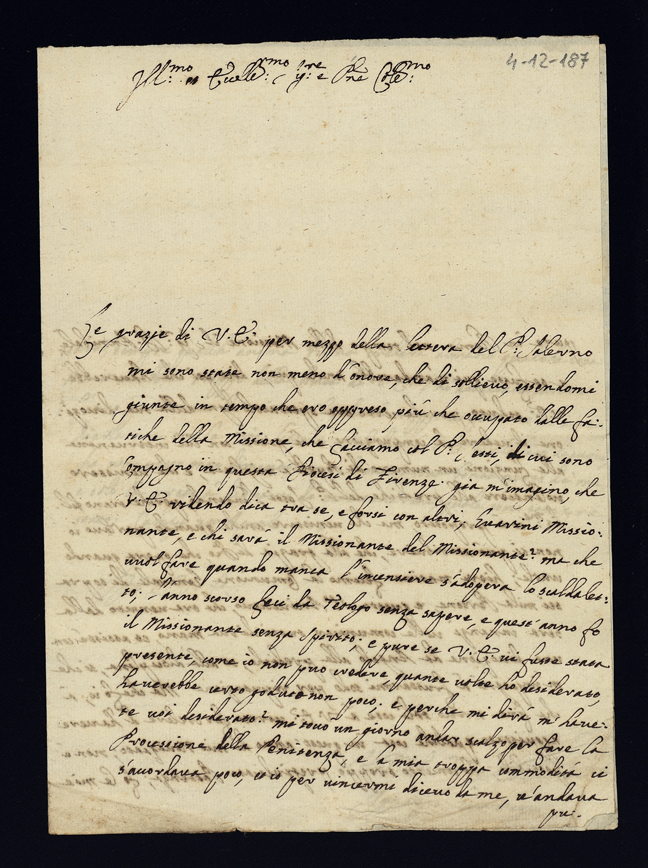 4-12-187
Ill:mo et Eccell:mo Sig:re e Pne Col:mo
Le grazie di V. E. per mezzo della lettera del P: Salerno
mi sono state non meno d'onore, che di sollievo, essendomi
giunte in tempo che ero oppreso, più che occupato dalle fa-
tiche della Missione, che facciamo col P: , di cui sono
Compagno in questa Diocesi di Firenze. già m'imagino, che
V. E. ridendo dica tra se, e forsi con altri, Guarini Missio-
nante, e chi sarà il Missionante del Missionante? ma che
vuol fare quando manca l'incensiere s'adopera lo scaldalet-
to; l'anno scorso feci da Teologo senza sapere, e quest'anno fo
il Missionante senza spirito; e pure se V. E. vi fusse stata
presente, come io non può credere quante volte ho desiderato,
haverebbe certo goduto non poco. e perche mi dirà m'have-
te voi desiderato? mi toccò un giorno andar scalzo per fare la
Processione della Penitenza, e la mia troppa commodità ci
s'accordava poco, io per vincermi dicevo da me, v'andava
pu-